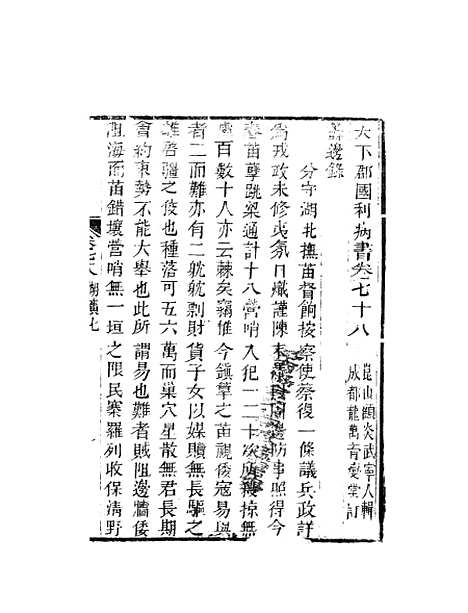 天下郡國利病書卷七十八
崑山顧炎武寧人輯
成都龍萬育燮堂訂
詳邊錄
分守湖北撫苗督餉按察使蔡復一條議兵政詳
爲戎政未修夷氛日熾謹陳末議防事照得今
春苗孽跳梁通計十八營哨入犯一二十次所擄掠無
慮百數十人亦云棘矣竊惟今鎮筸之苗視倭寇易與
者二而難亦有二躭躭剽財貨子女以媒贖無長驅之
雄啓疆之俊也種落可五六萬而巢穴星散無君長期
會約束勢不能大舉也此所謂易也難者賊阻邊牆倭
阻海而苗錯壤營哨無一垣之限民寨羅列收保清野
卷七八 湖廣七